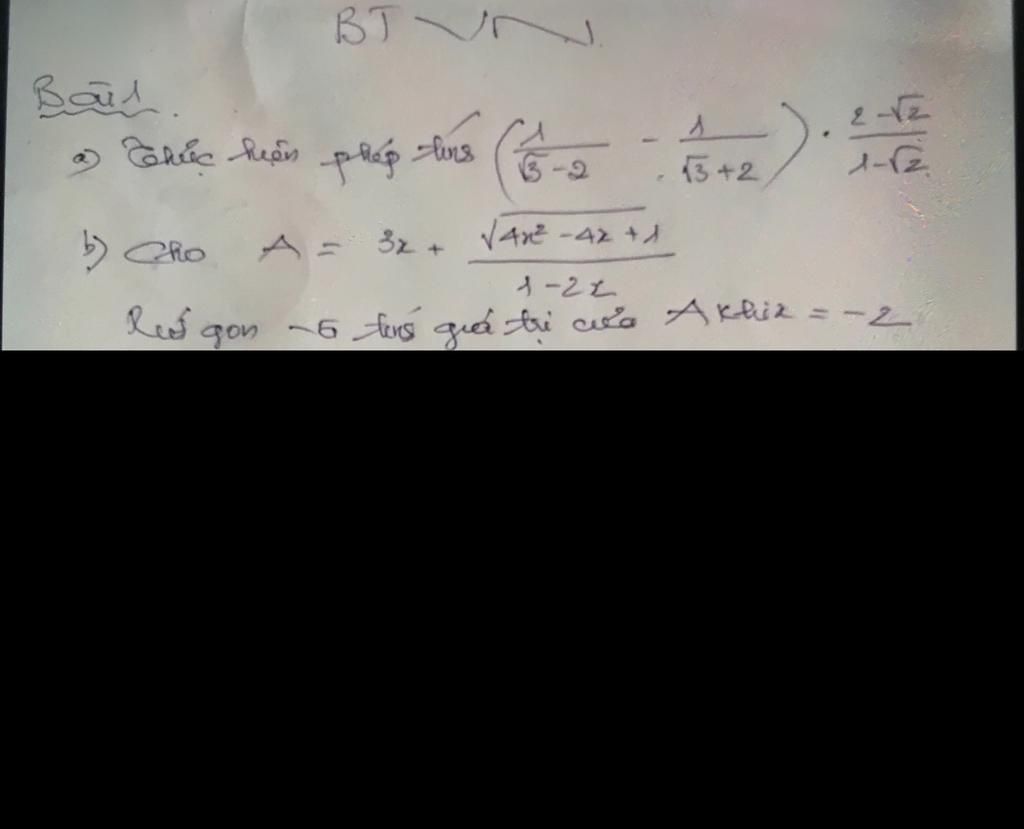 BTVN
Bài 1.
a) Thực hiện phép tính (1/(√3-2) - 1/(√3+2)) · (2-√2)/(1-√2)
b) Cho A = 3x + √(4x² - 4x + 1)/(1-2x)
Rút gọn tính giá trị của A khi x = -2